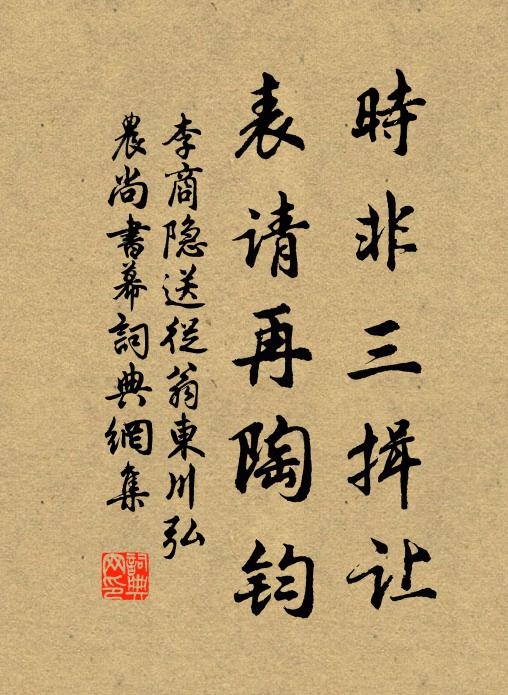 時非三揖让
表请再陶钧
李商隐送從翁東川弘
農尚書幕詞典網集
詞典
网印